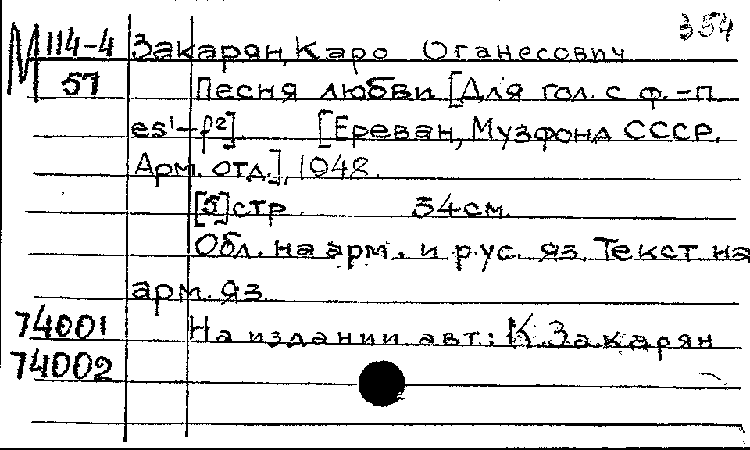 354
М 114-4
57
Закарян, Каро Оганесович
Песня любви [Для гол. с ф.-п.
es¹-f²]. [Ереван, Музфонд СССР.
Арм. отд.], 1948.
[5] стр. 34 см.
Обл. на арм. и рус. яз. Текст на
арм. яз.
74001 На издании авт.: К. Закарян
74002